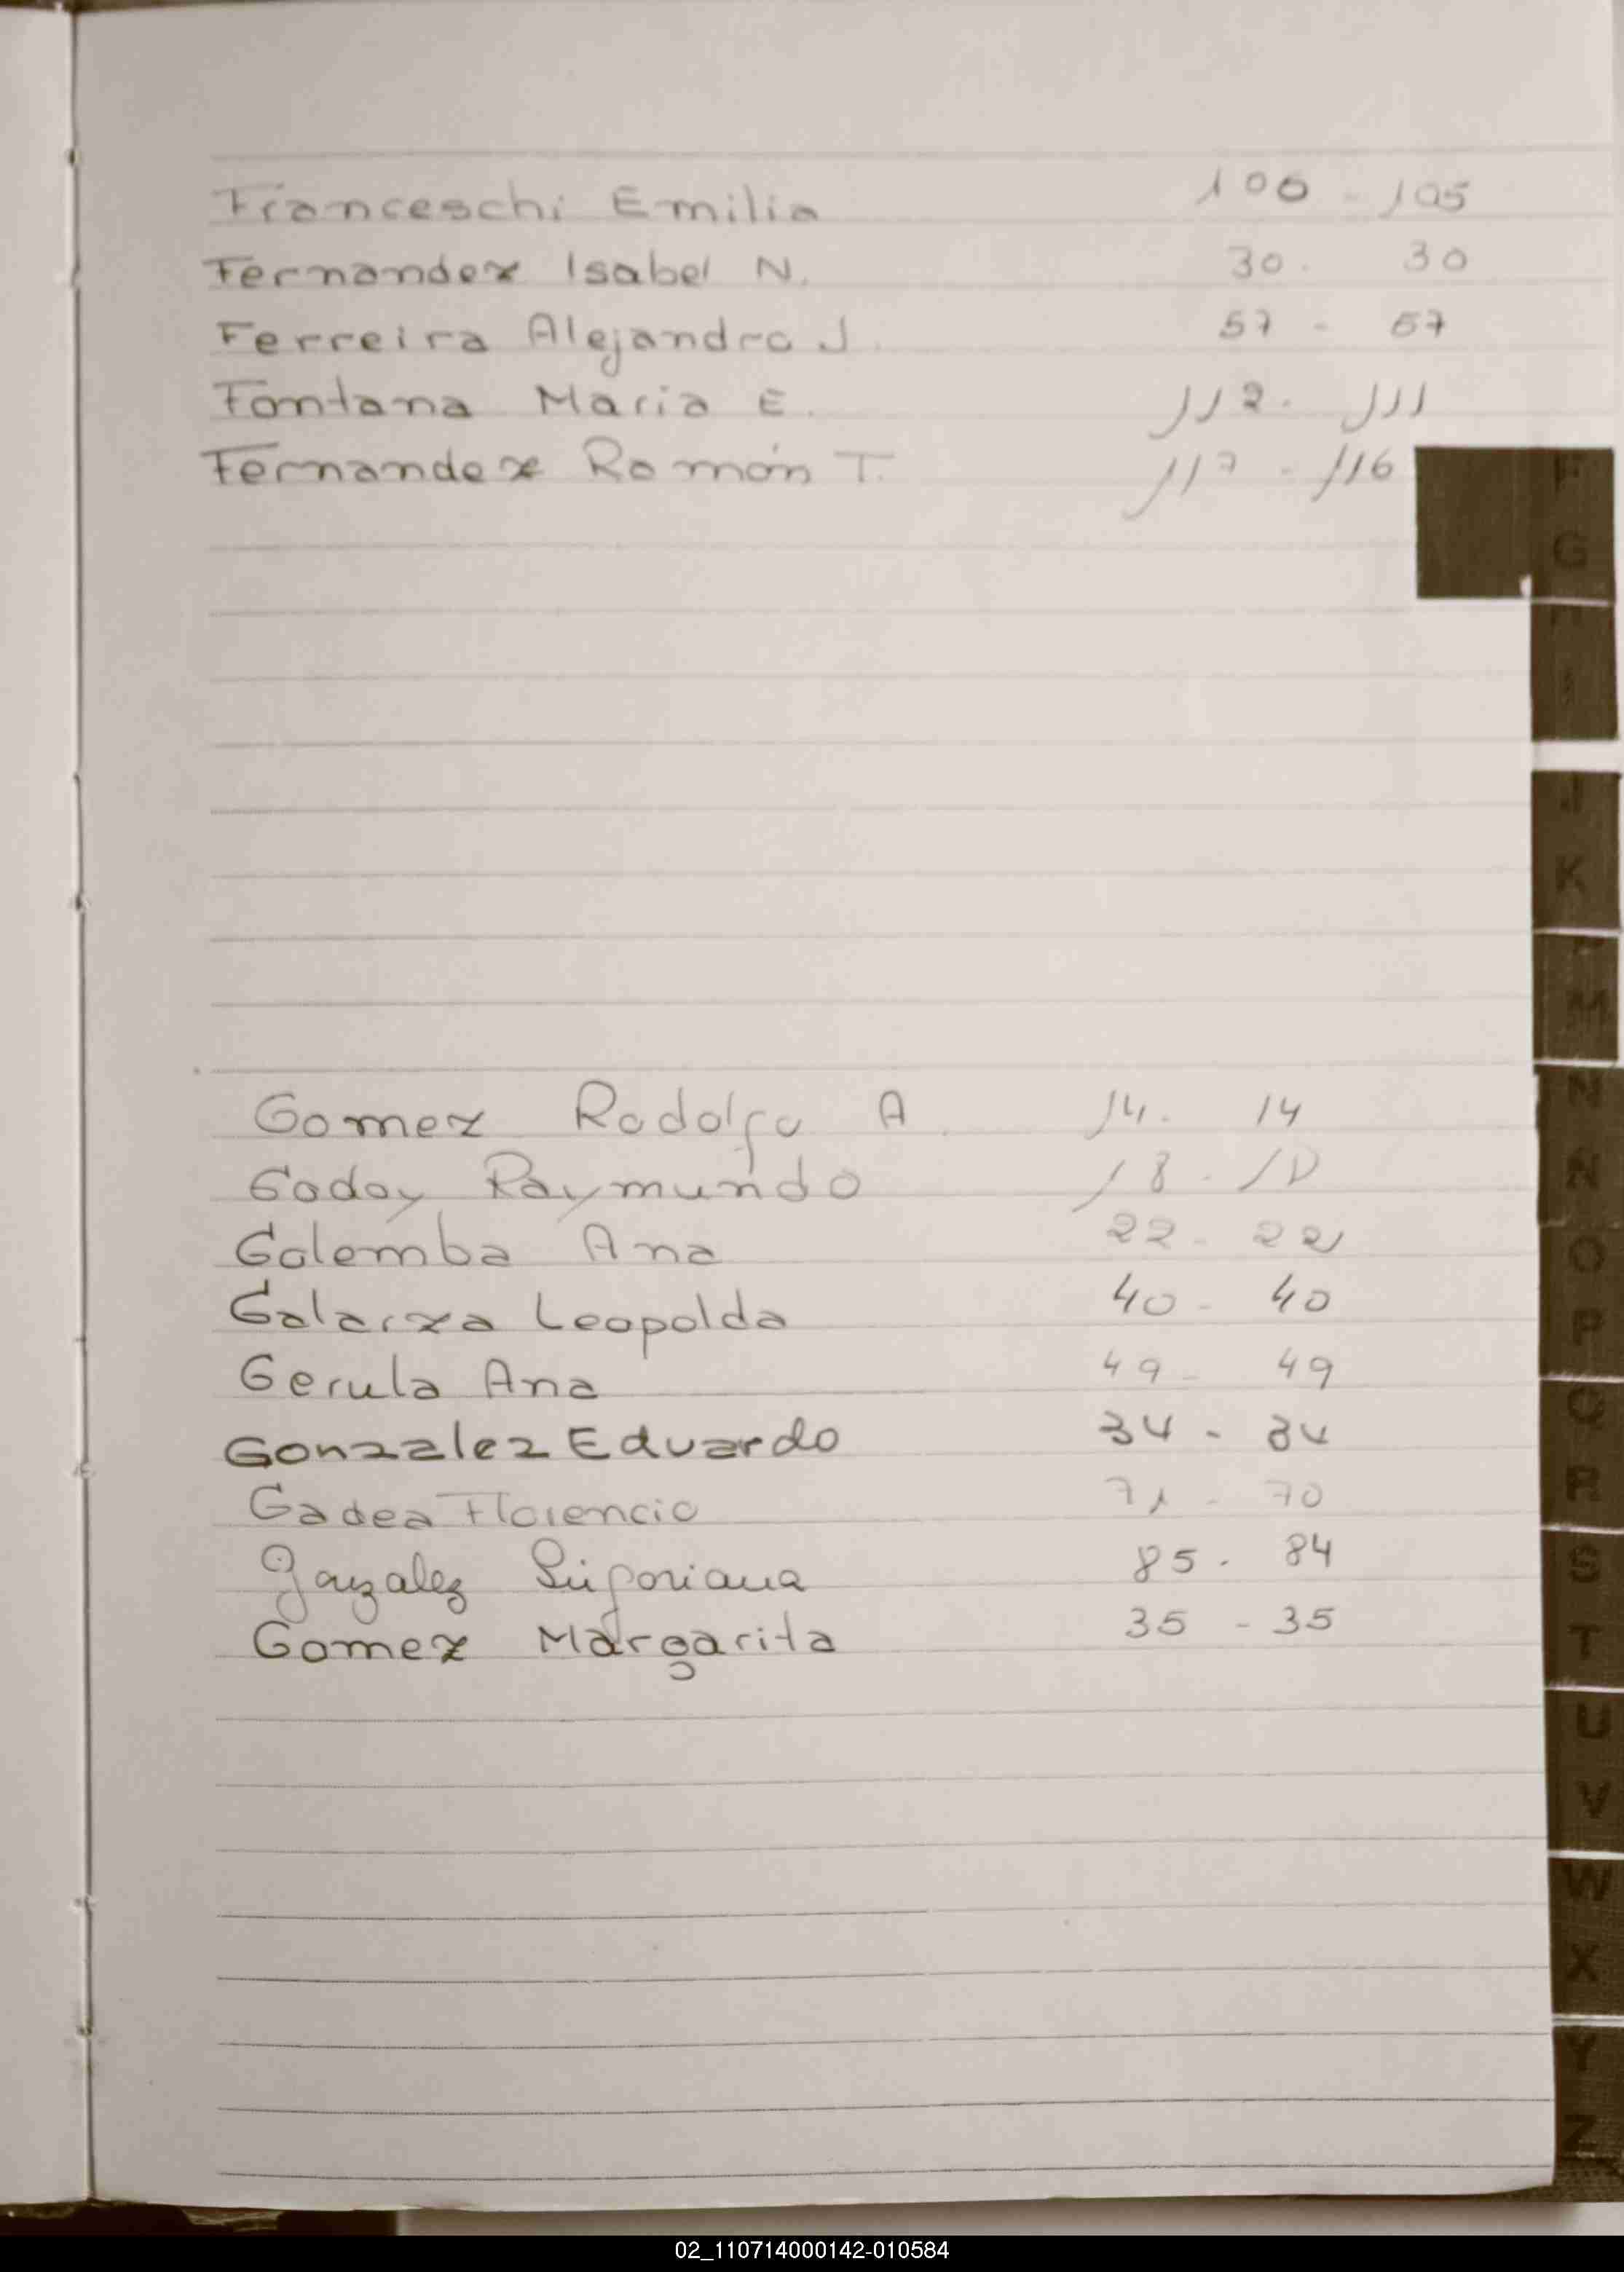 Franceschi Emilia 106 - 105
Fernandez Isabel N. 30. 30
Ferreira Alejandro J. 57 - 57
Fontana Maria E. 112. 111
Fernandez Román T. 117 - 116
F
G
I
J
K
M
N
N
O
P
Q
R
S
T
U
V
W
X
Y
Z
Gomez Rodolfo A. 14. 14
Godoy Raymundo 18. 18
Golemba Ana 22. 22
Galarza Leopolda 40 - 40
Gerula Ana 49 - 49
Gonzalez Eduardo 34 - 34
Gadea Florencio 71 - 70
Gonzalez 85. 84
Gomez Margarita 35 - 35
02_110714000142-010584